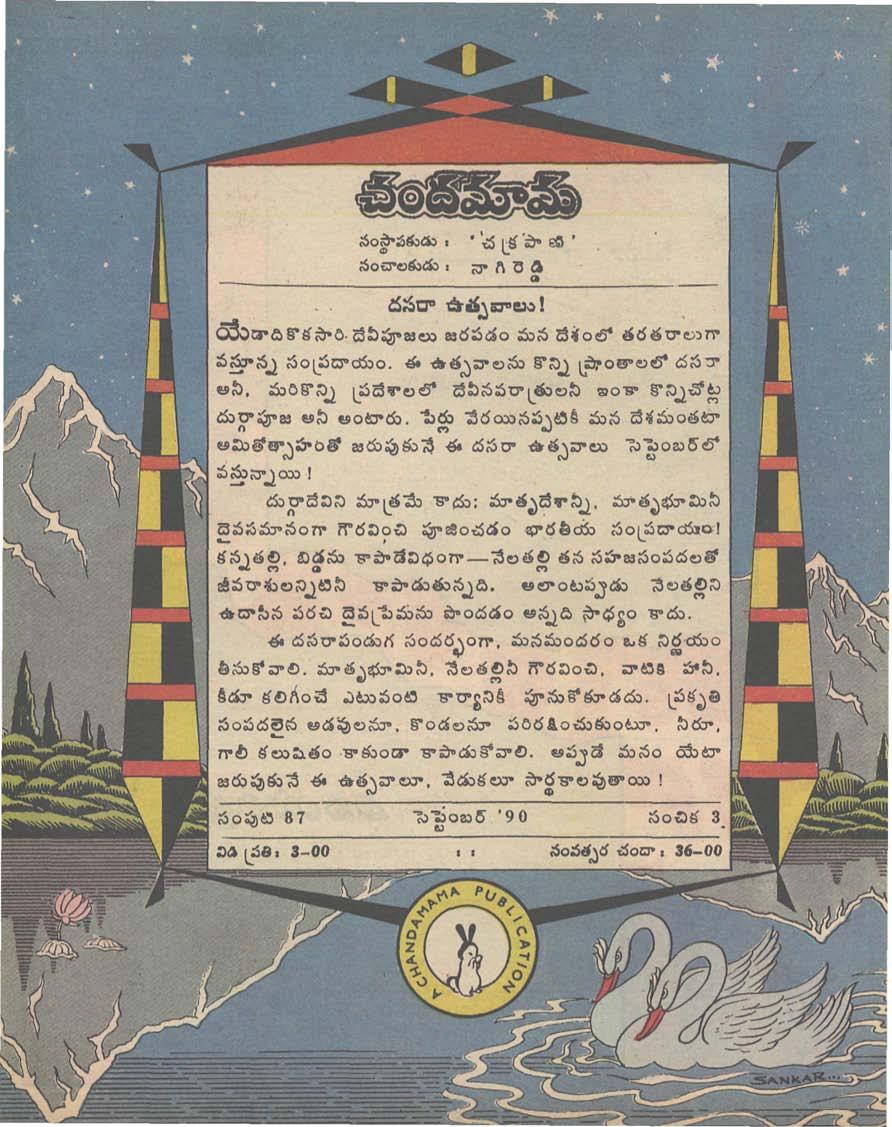 చందమామ
సంస్థాపకుడు : 'చక్రపాణి'
సంచాలకుడు : నాగిరెడ్డి
దసరా ఉత్సవాలు!
యేడాదికొకసారి దేవీపూజలు జరపడం మన దేశంలో తరతరాలుగా
వస్తూన్న సంప్రదాయం. ఈ ఉత్సవాలను కొన్ని ప్రాంతాలలో దసరా
అనీ, మరికొన్ని ప్రదేశాలలో దేవీనవరాత్రులనీ ఇంకా కొన్నిచోట్ల
దుర్గాపూజ అనీ అంటారు. పేర్లు వేరయినప్పటికీ మన దేశమంతటా
అమితోత్సాహంతో జరుపుకునే ఈ దసరా ఉత్సవాలు సెప్టెంబర్‌లో
వస్తున్నాయి!
దుర్గాదేవిని మాత్రమే కాదు; మాతృదేశాన్నీ, మాతృభూమినీ
దైవసమానంగా గౌరవించి పూజించడం భారతీయ సంప్రదాయం!
కన్నతల్లి, బిడ్డను కాపాడేవిధంగా—నేలతల్లి తన సహజసంపదలతో
జీవరాశులన్నిటినీ కాపాడుతున్నది. అలాంటప్పుడు నేలతల్లిని
ఉదాసీన పరచి దైవప్రేమను పొందడం అన్నది సాధ్యం కాదు.
ఈ దసరాపండుగ సందర్భంగా, మనమందరం ఒక నిర్ణయం
తీసుకోవాలి. మాతృభూమినీ, నేలతల్లినీ గౌరవించి, వాటికి హానీ,
కీడూ కలిగించే ఎటువంటి కార్యానికీ పూనుకోకూడదు. ప్రకృతి
సంపదలైన అడవులనూ, కొండలనూ పరిరక్షించుకుంటూ, నీరూ,
గాలీ కలుషితం కాకుండా కాపాడుకోవాలి. అప్పుడే మనం యేటా
జరుపుకునే ఈ ఉత్సవాలూ, వేడుకలూ సార్థకాలవుతాయి!
సంపుటి 87 సెప్టెంబర్ '90 సంచిక 3
విడి ప్రతి: 3-00 :: సంవత్సర చందా: 36-00
A CHANDAMAMA PUBLICATION
SANKAR...